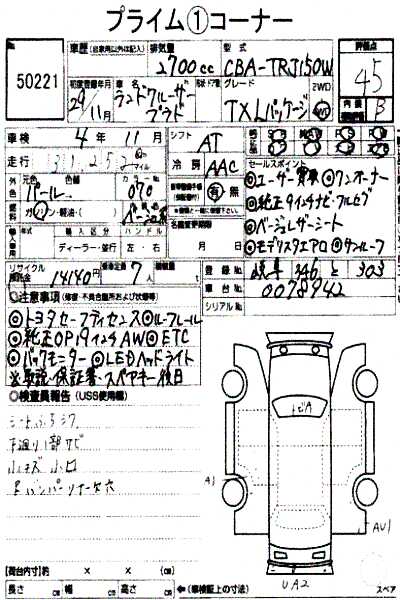 プライム①コーナー
50221
車歴 (自家用以外は記入) 排気量 型式
2700cc CBA-TRJ150W
評価点
45
内装
B
初度登録年月 車名 グレード 2WD
29年11月 ランドクルーザープラド TXLパッケージ 4WD
車検 4年 11月 シフト AT
走行 マイル
冷房 AAC
外色 元色 色替 カラーNo.
パール 070
燃料 ガソリン・軽油・( )
有・無
名義変更期限
月 日
セールスポイント
◎ユーザー買取 ◎ワンオーナー
◎純正9インチナビ・フルセグ
◎ベージュレザーシート
◎モデリスタエアロ ◎サンルーフ
輸入車 年式 輸入区分 ハンドル
ディーラー・並行 左・右
リサイクル預託金 14140円 乗車定員 7人 積載量 t
登録No. 岐阜 346 と 303
車台No. 0078942
シリアルNo.
◎注意事項 (修復・不具合箇所および状態等)
◎トヨタセーフティセンス◎ルーフレール
◎純正OP19インチAW◎ETC
◎バックモニター◎LEDヘッドライト
※取説・保証書・スペアキー後日
◎検査員報告 (USS使用欄)
下廻り1部サビ
小キズ 小凹
トビA
A1
AU1
UA2
【荷台内寸】約 × × (cm)
長さ cm 幅 cm 高さ cm
←(車検証上の寸法)
スペア